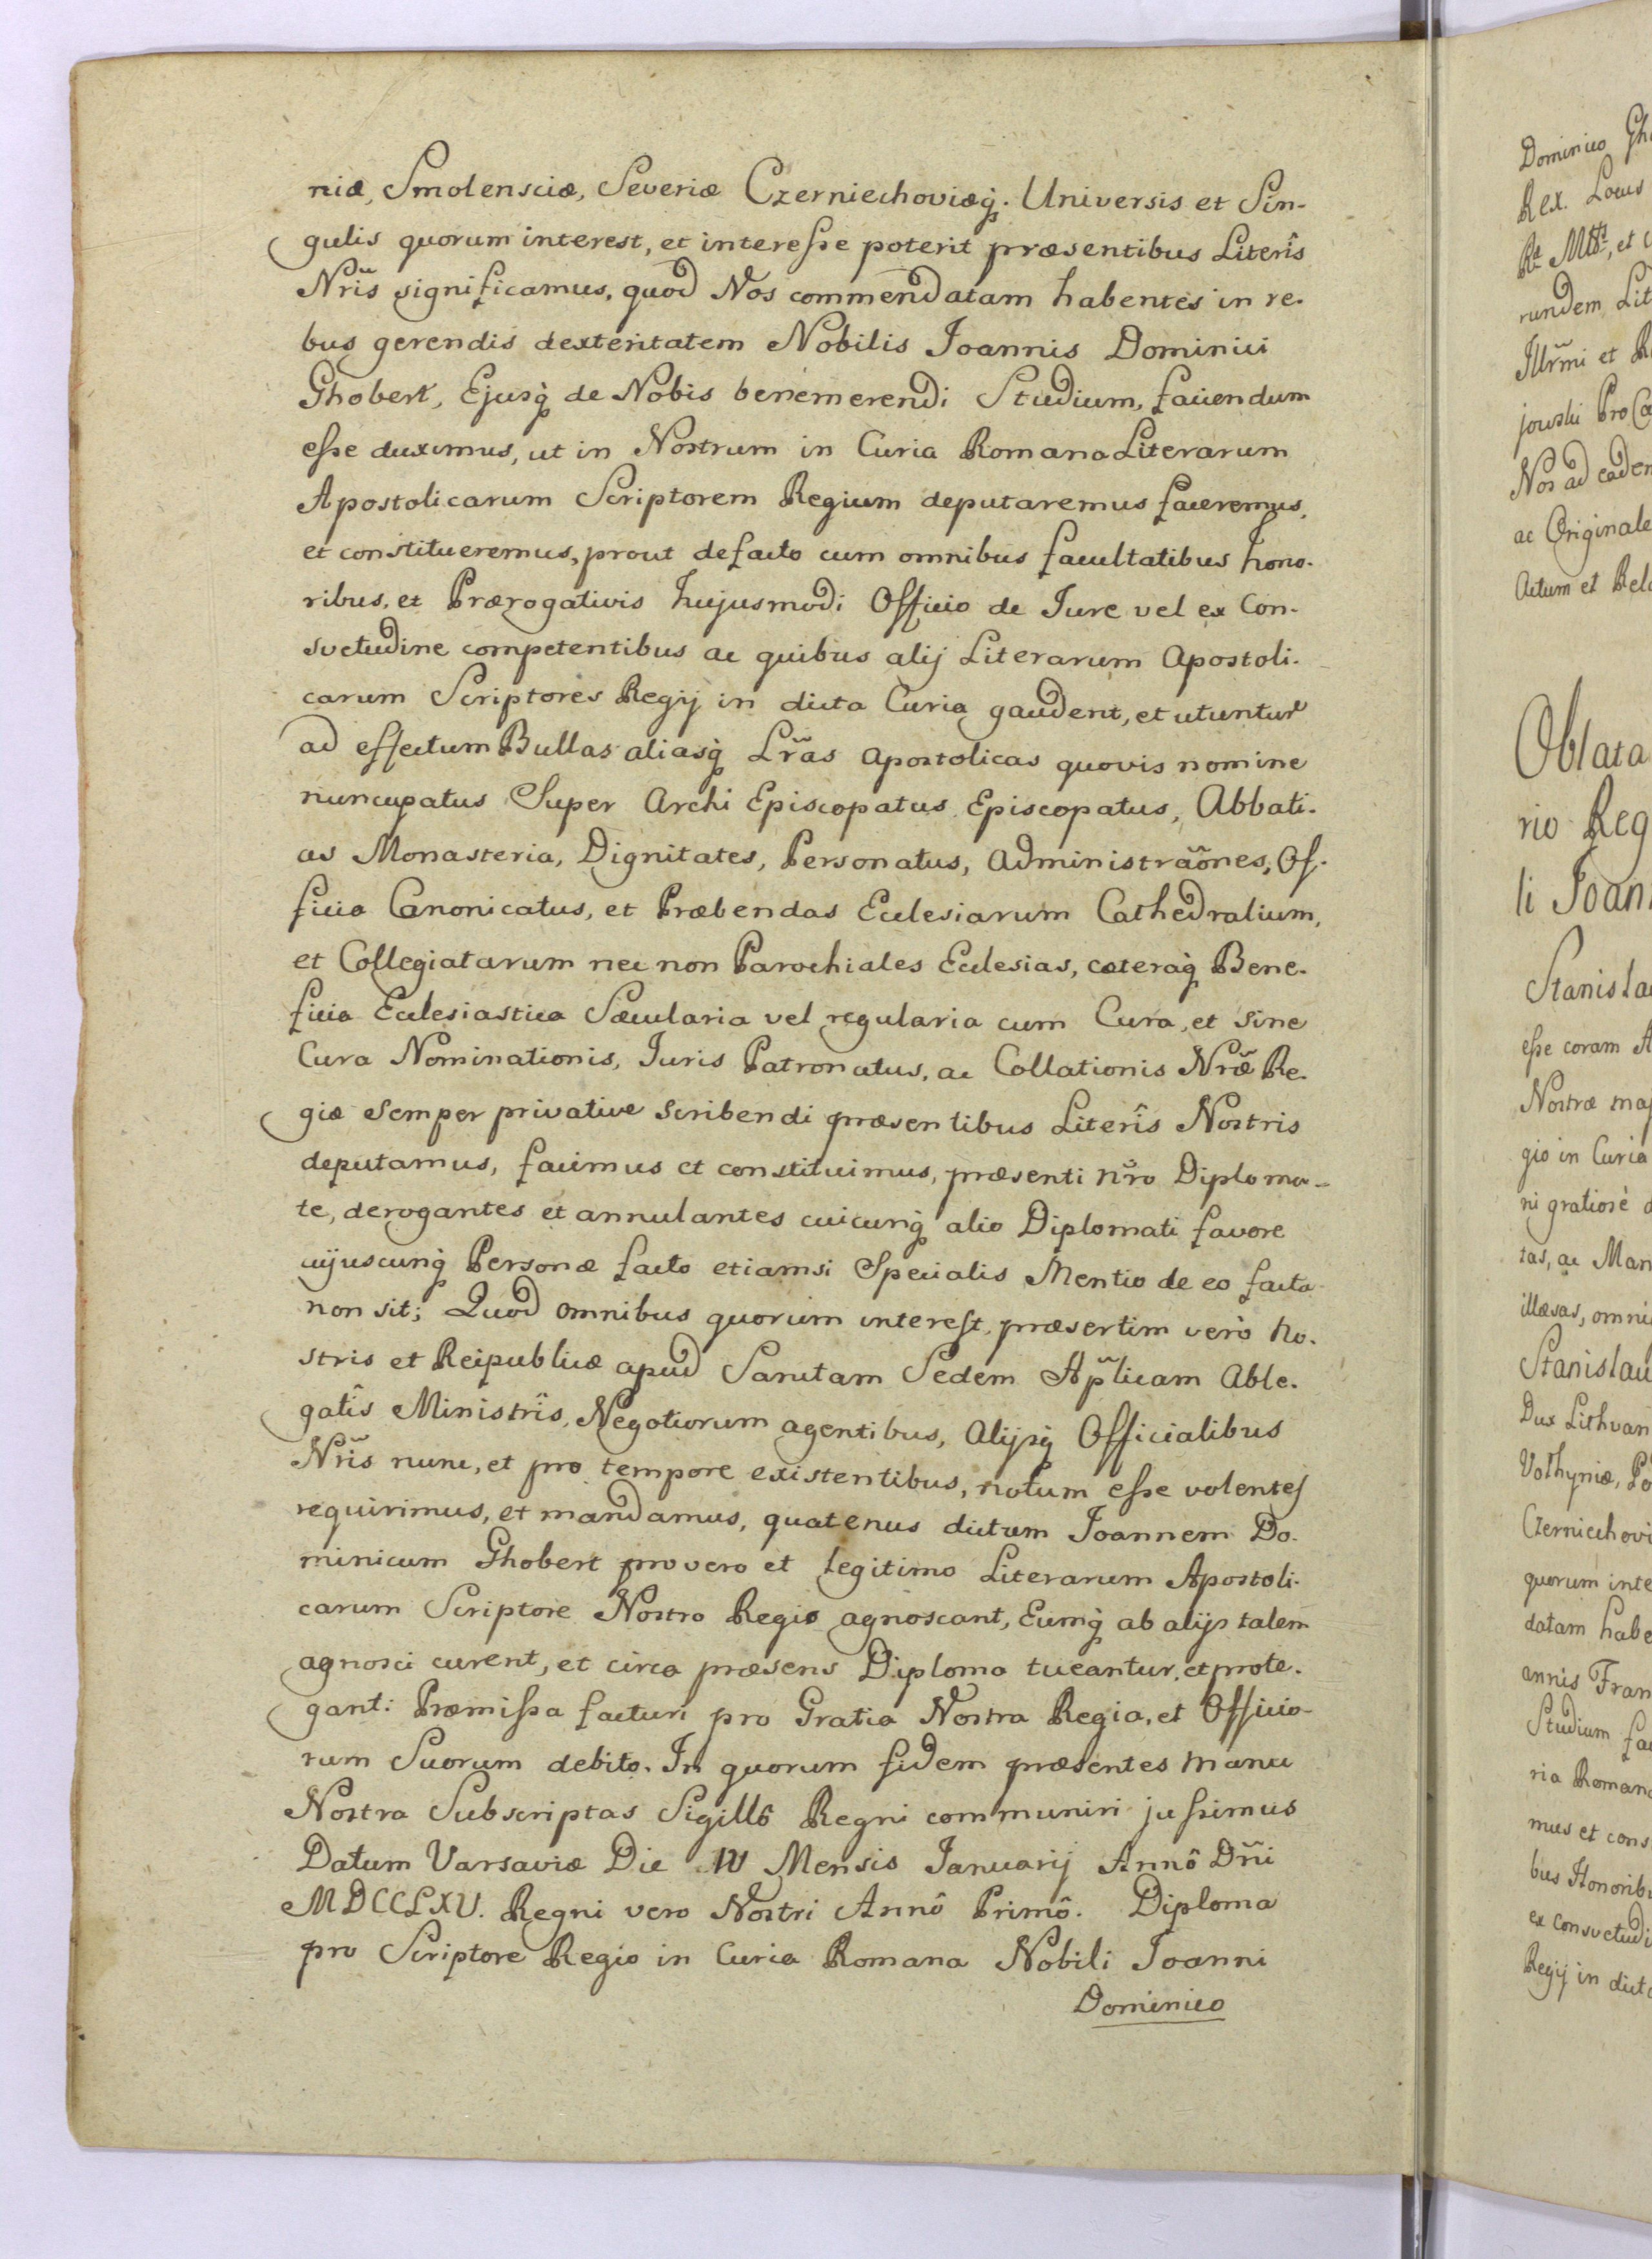 niæ, Smolensciæ, Severiæ Czerniechoviæq́. Universis et Sin-
gulis quorum interest, et interesse poterit præsentibus Literîs
Nr̃is significamus, quod Nos commendatam habentes in re-
bus gerendis dexteritatem Nobilis Joannis Dominici
Ghobert, Ejusq́ de Nobis benemerendi Studium, faciendum
esse duximus, ut in Nostrum in Curia Romana Literarum
Apostolicarum Scriptorem Regium deputaremus faceremus,
et constitueremus, prout defacto cum omnibus facultatibus hono-
ribus, et Prærogativis hujusmodi Officio de Jure vel ex Con-
svetudine competentibus ac quibus alij Literarum Apostoli-
carum Scriptores Regij in dicta Curia gaudent, et utuntur
ad effectum Bullas aliasq́ Lr̃as Apostolicas quovis nomine
nuncupatus Super Archi Episcopatus Episcopatus, Abbati-
as Monasteria, Dignitates, Personatus, Administrãones, Of-
ficia Canonicatus, et Præbendas Ecclesiarum Cathedralium,
et Collegiatarum nec non Parochiales Ecclesias, cæteraq́ Bene-
ficia Ecclesiastica Sæcularia vel regularia cum Cura, et sine
Cura Nominationis, Juris Patronatus, ac Collationis Nr̃æ Re-
giæ semper privative scribendi præsentibus Literîs Nostris
deputamus, facimus et constituimus, præsenti nr̃o Diploma-
te, derogantes et annulantes cuicunq́ alio Diplomati favore
cujuscunq́ Personæ facto etiamsi Specialis Mentio de eo facta
non sit; Quod omnibus quorum interest, præsertim verò No-
stris et Reipublicæ apud Sanctam Sedem Ap̃licam Able-
gatîs Ministrîs, Negotiorum agentibus, Alijsq́ Officialibus
Nr̃is nunc, et pro tempore existentibus, notum esse volentes
requirimus, et mandamus, quatenus dictum Joannem Do-
minicum Ghobert pro vero et legitimo Literarum Apostoli-
carum Scriptore Nostro Regio agnoscant, Eumq́ ab alijs talem
agnosci curent, et circa præsens Diploma tueantur, et prote-
gant: Præmissa facturi pro Gratia Nostra Regia, et Officio-
rum Suorum debito. In quorum fidem præsentes manu
Nostra Subscriptas Sigillô Regni communiri jussimus
Datum Varsaviæ Die IV Mensis Januarij Annô Dñi
MDCCLXV. Regni vero Nostri Annô Primô. Diploma
pro Scriptore Regio in Curia Romana Nobili Joanni
Dominico
Dominico
Rex. Locus
rundem Lit
Illr̃mi et
Nos ad eadem
ac Originale
Actum et Rela
Oblata
rio Reg
li Joan
Stanislau
esse coram A
Nostræ maj
gio in Curia
ni gratiosè
tas, ac Man
illæsas, omni
Stanislau
Dux Lithvan
Volhyniæ, Po
Czerniechovi
quorum inte
datam habe
annis Fran
Studium fa
ria Romana
mus et cons
bus Honorib
ex Consvetudi
Regij in dicta